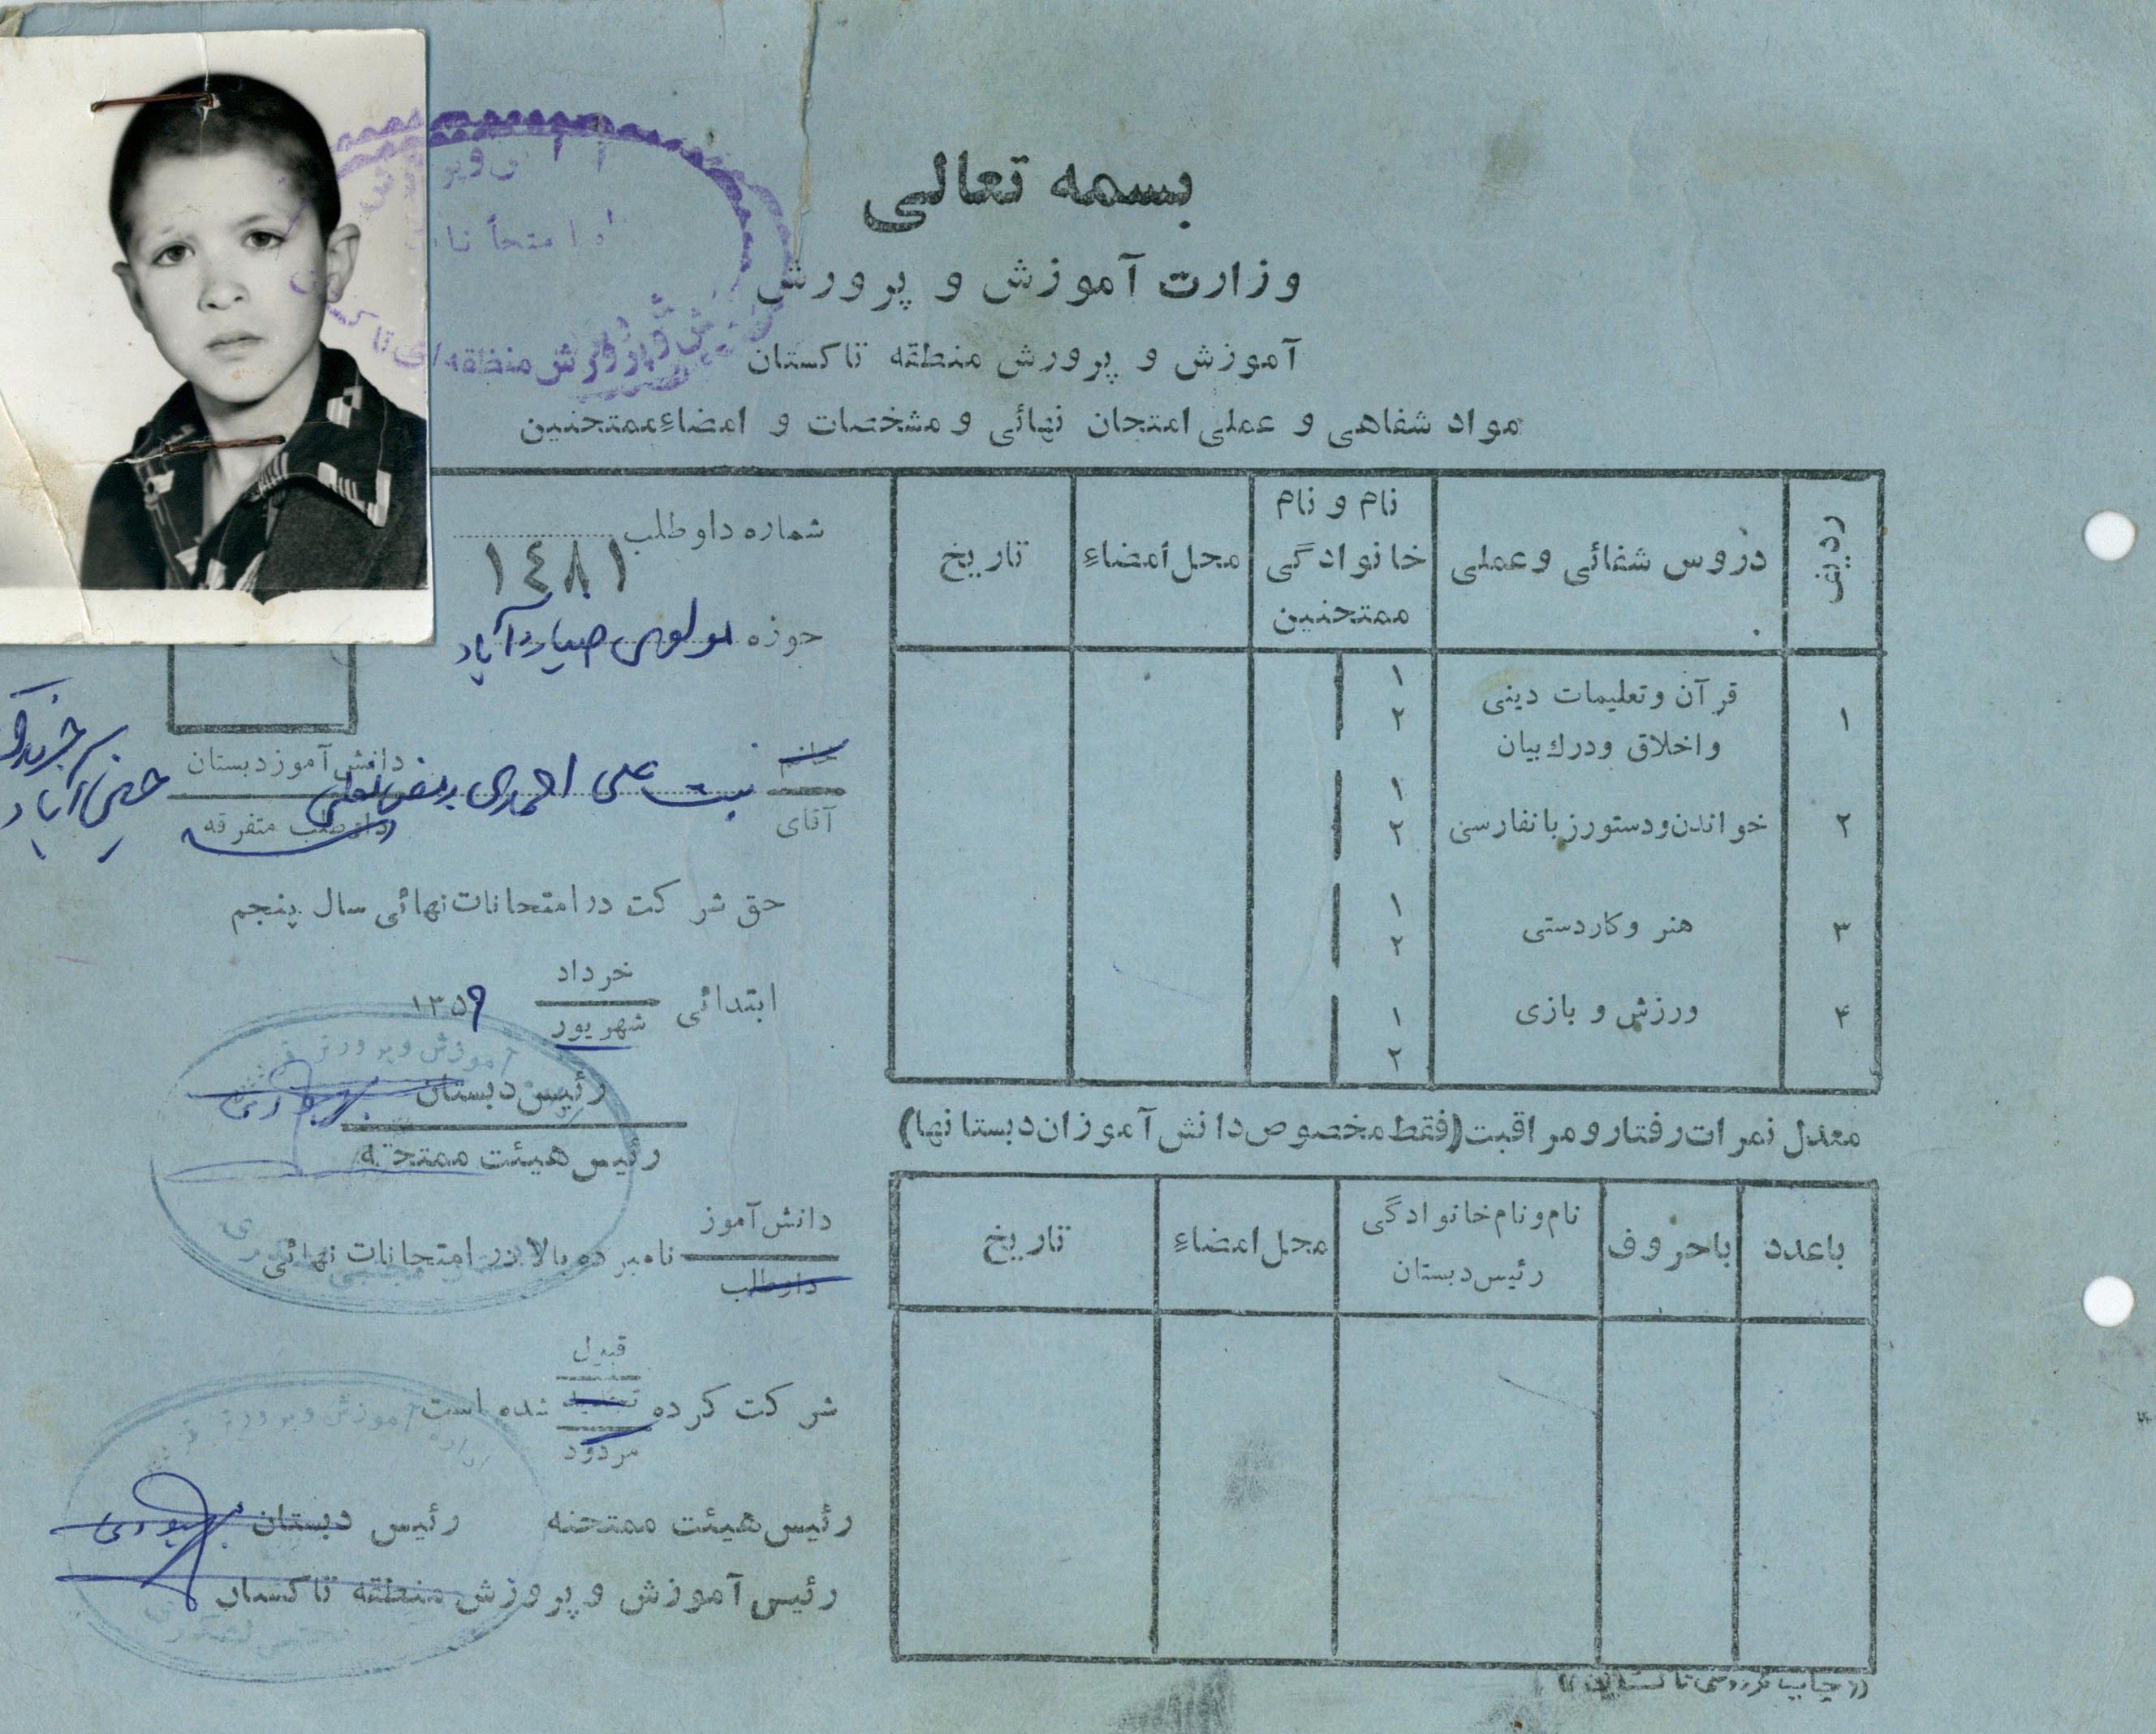 بسمه تعالی
وزارت آموزش و پرورش
آموزش و پرورش منطقه تاکستان
مواد شفاهی و عملی امتحان نهائی و مشخصات و امضاء ممتحنین
ردیف
دروس شفائی و عملی
نام و نام خانوادگی ممتحنین
محل امضاء
تاریخ
۱
قرآن و تعلیمات دینی
و اخلاق و درك بیان
۱
۲
۲
خواندن و دستور زبان فارسی
۱
۲
۳
هنر و کاردستی
۱
۲
۴
ورزش و بازی
۱
۲
معدل نمرات رفتار و مراقبت (فقط مخصوص دانش آموزان دبستانها)
با عدد
با حروف
نام و نام خانوادگی
رئیس دبستان
محل امضاء
تاریخ
شماره داوطلب
۱٤۸۱
حوزه مولوی ضیاءآباد
خانم
آقای
علی احمدی
دانش آموز دبستان
داوطلب متفرقه
حق شرکت در امتحانات نهائی سال پنجم
ابتدائی
خرداد
شهریور
۱۳۵۹
رئیس دبستان
رئیس هیئت ممتحنه
دانش آموز
داوطلب
نامبرده بالا در امتحانات نهائی
شرکت کرده
قبول
تجدید
مردود
شده است
رئیس هیئت ممتحنه
رئیس دبستان
رئیس آموزش و پرورش منطقه تاکستان